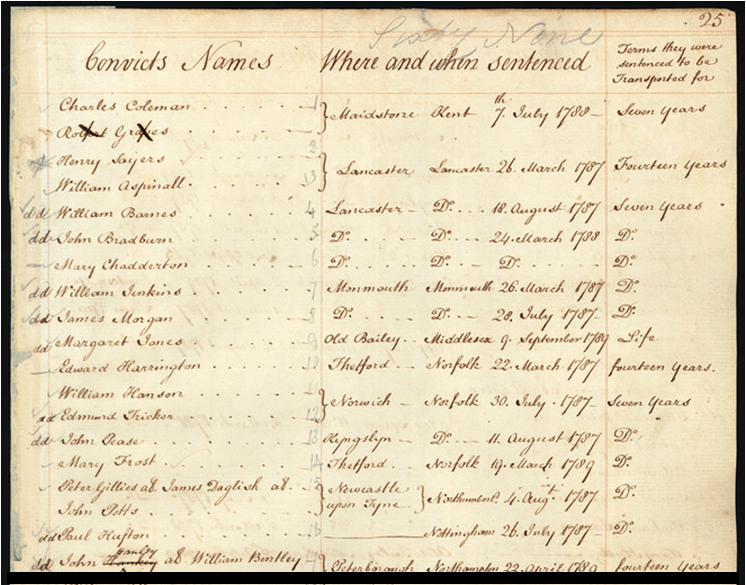 25
Sixty Nine
Convicts Names Where and when sentenced Terms they were sentenced to be Transported for
Charles Coleman 1 } Maidstone Kent 7th July 1788 — Seven Years
Robert Graves
Henry Sayers 2 } Lancaster Lancaster 26. March 1787 Fourteen Years
William Aspinall 3
dd William Barnes 4 Lancaster — Do. 18. August 1787 Seven Years
dd John Bradburn 5 Do. — Do. — 24. March 1788 Do.
Mary Chadderton 6 Do. Do. — Do. Do.
dd William Jenkins 7 Monmouth Monmouth 26. March 1787 Do.
dd James Morgan 8 Do. — Do. — 28. July 1787 — Do.
dd Margaret Jones 9 Old Bailey Middlesex 9. September 1789 Life
Edward Harrington 10 Thetford Norfolk 22. March 1787 fourteen Years.
William Hanson 11 } Norwich — Norfolk 30. July 1787 — Seven Years
dd Edmund Tricker 12
dd John Pease 13 Do. — 11. August 1787 Do.
Mary Frost 14 Thetford — Norfolk 19. March 1789 Do.
Peter Gillies als. James Daglish als. 15 } Newcastle upon Tyne } Northumberld. 4. Augst. 1787 Do.
John Potts
dd Paul Hufton 16 Nottingham 26. July 1787 — Do.
Hanley
dd John Hankey als William Bentley 17 Peterborough Northampton 22. April 1789 fourteen Years